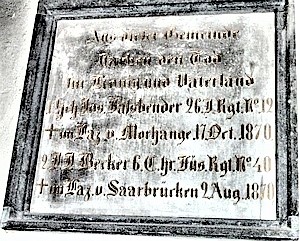 Aus dieser Gemeinde
starben den Tod
für König und Vaterland
Joh. Jos. Fassbender 26. I. Rgt. No 12
† im Laz. v. Morhange 17. Oct. 1870
2. Becker 6. C. Hr. Füs. Rgt. No 40
† im Laz. v. Saarbrücken 2. Aug. 1870